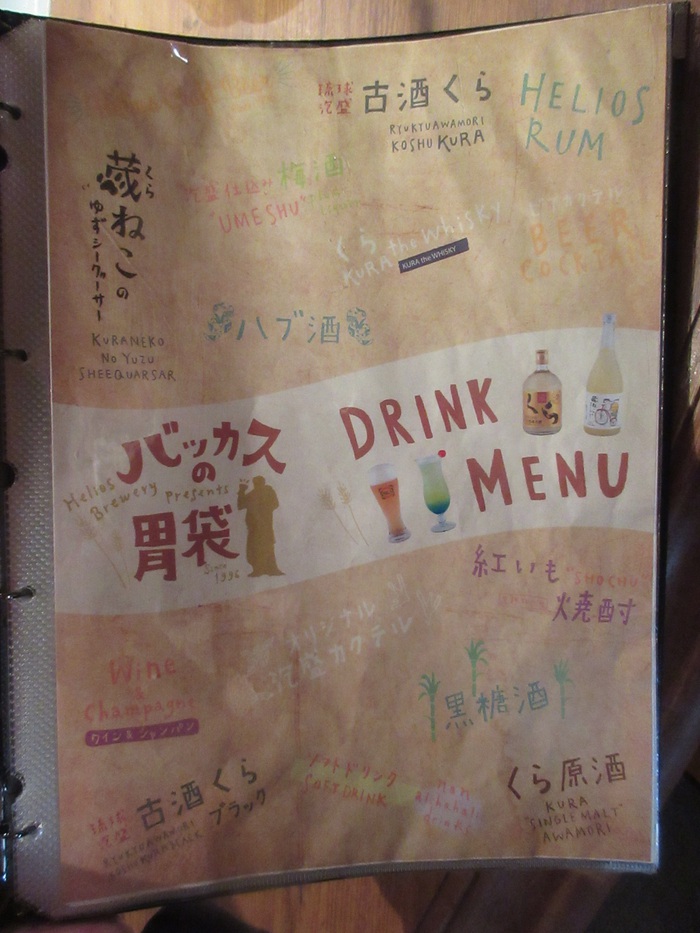 琉球
泡盛
古酒くら
RYUKYUAWAMORI
KOSHU KURA
HELIOS
RUM
蔵ねこの
くら
ゆずシークヮーサー
KURANEKO
No YUZU
SHEEQUARSAR
泡盛仕込み 梅酒
"UMESHU"
くら the Whisky
KURA the
KURA the WHISKY
ビアカクテル
BEER
COCKTAIL
ハブ酒
DRINK
MENU
バッカス
の
胃袋
Helios
Brewery Presents
Since
1996
紅いも "SHOCHU"
焼酎
オリジナル
泡盛カクテル
Wine
&
Champagne
ワイン&シャンパン
黒糖酒
琉球
泡盛
古酒くら
ブラック
RYUKYUAWAMORI
ソフトドリンク
SOFT DRINK
Non
Alchohol
drinks
くら原酒
KURA
"SINGLE MALT"
AWAMORI